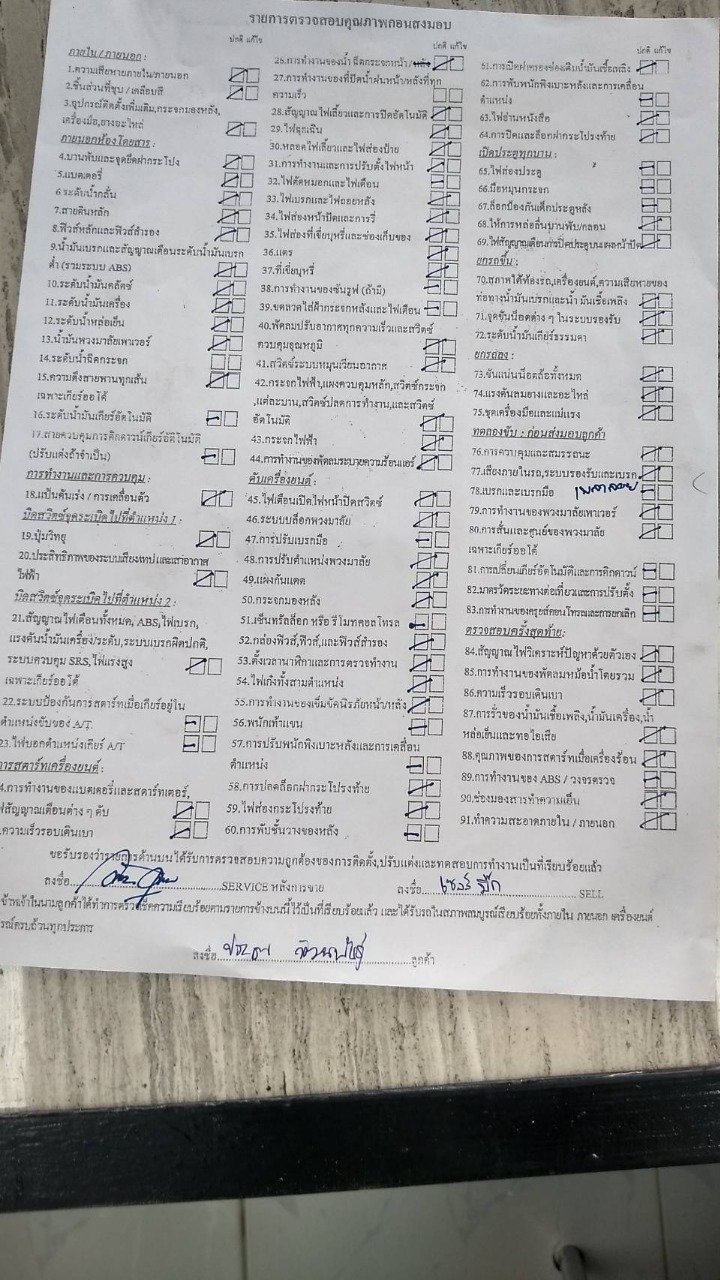 รายการตรวจสอบคุณภาพก่อนส่งมอบ
ปกติ แก้ไข
ภายใน / ภายนอก :
1.ความเสียหายภายใน/ภายนอก
2.ชิ้นส่วนที่ชุบ / เคลือบสี
3.อุปกรณ์ติดตั้งเพิ่มเติม,กระจกมองหลัง,
เครื่องมือ,ยางอะไหล่
ภายนอกห้องโดยสาร :
4.บานพับและจุดยึดฝากระโปรง
5.แบตเตอรี่
6.ระดับน้ำกลั่น
7.สายดินหลัก
8.ฟิวส์หลักและฟิวส์สำรอง
9.น้ำมันเบรกและสัญญาณเตือนระดับน้ำมันเบรก
ต่ำ (รวมระบบ ABS)
10.ระดับน้ำมันคลัตช์
11.ระดับน้ำมันเครื่อง
12.ระดับน้ำหล่อเย็น
13.น้ำมันพวงมาลัยเพาเวอร์
14.ระดับน้ำฉีดกระจก
15.ความตึงสายพานทุกเส้น
เฉพาะเกียร์ออโต้
16.ระดับน้ำมันเกียร์อัตโนมัติ
17.สายควบคุมการคิกดาวน์เกียร์อัติโนมัติ
(ปรับแต่งถ้าจำเป็น)
การทำงานและการควบคุม :
18.แป้นคันเร่ง / การเคลื่อนตัว
บิดสวิตช์จุดระเบิดไปที่ตำแหน่ง 1 :
19.ปุ่มวิทยุ
20.ประสิทธิภาพของระบบเสียงเทปและเสาอากาศ
ไฟฟ้า
บิดสวิตช์จุดระเบิดไปที่ตำแหน่ง 2 :
21.สัญญาณไฟเตือนทั้งหมด, ABS,ไฟเบรก,
แรงดันน้ำมันเครื่อง/ระดับ,ระบบเบรกผิดปกติ,
ระบบควบคุม SRS,ไฟแรงสูง
เฉพาะเกียร์ออโต้
22.ระบบป้องกันการสตาร์ทเมื่อเกียร์อยู่ใน
ตำแหน่งขับของ A/T.
23.ไฟบอกตำแหน่งเกียร์ A/T
การสตาร์ทเครื่องยนต์ :
4.การทำงานของแบตเตอรี่และสตาร์ทเตอร์,
ฟสัญญาณเตือนต่าง ๆ ดับ
ความเร็วรอบเดินเบา
ปกติ แก้ไข
26.การทำงานของน้ำ ฉีดกระจกหน้า / หลัง
27.การทำงานของที่ปัดน้ำฝนหน้า/หลังที่ทุก
ความเร็ว
28.สัญญาณไฟเลี้ยวและการปิดอัตโนมัติ
29.ไฟฉุกเฉิน
30.หลอดไฟเลี้ยวและไฟส่องป้าย
31.การทำงานและการปรับตั้งไฟหน้า
32.ไฟตัดหมอกและไฟเตือน
33.ไฟเบรกและไฟถอยหลัง
34.ไฟส่องหน้าปัดและการหรี่
35.ไฟส่องที่เขี่ยบุหรี่และช่องเก็บของ
36.แตร
37.ที่เขี่ยบุหรี่
38.การทำงานของซันรูฟ (ถ้ามี)
39.ขดลวดไล่ฝ้ากระจกหลังและไฟเตือน
40.พัดลมปรับอากาศทุกความเร็วและสวิตช์
ควบคุมอุณหภูมิ
41.สวิตช์ระบบหมุนเวียนอากาศ
42.กระจกไฟฟ้า,แผงควบคุมหลัก,สวิตช์กระจก
,แต่ละบาน,สวิตช์ปลดการทำงาน,และสวิตช์
อัตโนมัติ
43.กระจกไฟฟ้า
44.การทำงานของพัดลมระบายความร้อนแอร์
ดับเครื่องยนต์ :
45.ไฟเตือนเปิดไฟหน้าปิดสวิตช์
46.ระบบบล็อคพวงมาลัย
47.การปรับเบรกมือ
48.การปรับตำแหน่งพวงมาลัย
49.แผงกันแดด
50.กระจกมองหลัง
51.เซ็นทรัลล็อก หรือ รีโมทคอลโทรล
52.กล่องฟิวส์,ฟิวส์,และฟิวส์สำรอง
53.ตั้งเวลานาฬิกาและการตรวจทำงาน
54.ไฟเก๋งทั้งสามตำแหน่ง
55.การทำงานของเข็มขัดนิรภัยหน้า/หลัง
56.พนักเท้าแขน
57.การปรับพนักพิงเบาะหลังและการเคลื่อน
ตำแหน่ง
58.การปลดล็อกฝากระโปรงท้าย
59.ไฟส่องกระโปรงท้าย
60.การพับชั้นวางของหลัง
ปกติ แก้ไข
61.การเปิดฝาครองช่องเติมน้ำมันเชื้อเพลิง
62.การพับพนักพิงเบาะหลังและการเคลื่อน
ตำแหน่ง
63.ไฟอ่านหนังสือ
64.การปิดและล็อกฝากระโปรงท้าย
เปิดประตูทุกบาน :
65.ไฟส่องประตู
66.มือหมุนกระจก
67.ล็อกป้องกันเด็กประตูหลัง
68.ให้การหล่อลื่นบานพับ/กลอน
ยกรถขึ้น :
70.สภาพใต้ท้องรถ,เครื่องยนต์,ความเสียหายของ
ท่อทางน้ำมันเบรกและน้ำ มันเชื้อเพลิง
71.จุดขันน็อตต่าง ๆ ในระบบรองรับ
72.ระดับน้ำมันเกียร์ธรรมดา
ยกรถลง :
73.ขันแน่นน็อตล้อทั้งหมด
74.แรงดันลมยางและอะไหล่
75.ชุดเครื่องมือและแม่แรง
ทดลองขับ : ก่อนส่งมอบลูกค้า
76.การควบคุมและสมรรถนะ
77.เสียงภายในรถ,ระบบรองรับและเบรก
78.เบรกและเบรกมือ
79.การทำงานของพวงมาลัยเพาเวอร์
80.การสั่นและศูนย์ของพวงมาลัย
เฉพาะเกียร์ออโต้
81.การเปลี่ยนเกียร์อัตโนมัติและการคิกดาวน์
82.มาตรวัดระยะทางต่อเที่ยวและการปรับตั้ง
83.การทำงานของครุยส์คอนโทรลและการยกเลิก
ตรวจสอบครั้งสุดท้าย:
84.สัญญาณไฟวิเคราะห์ปัญหาด้วยตัวเอง
85.การทำงานของพัดลมหม้อน้ำโดยรวม
86.ความเร็วรอบเดินเบา
87.การรั่วของน้ำมันเชื้อเพลิง,น้ำมันเครื่อง,น้ำ
หล่อเย็นและท่อไอเสีย
88.คุณภาพของการสตาร์ทเมื่อเครื่องร้อน
89.การทำงานของ ABS / วงจรตรวจ
90.ช่องมองสารทำความเย็น
91.ทำความสะอาดภายใน / ภายนอก
ขอรับรองว่ารายการด้านบนได้รับการตรวจสอบความถูกต้องของการติดตั้ง,ปรับแต่งและทดสอบการทำงานเป็นที่เรียบร้อยแล้ว
ลงชื่อ SERVICE หลังการขาย ลงชื่อ SELL
ข้าพเจ้าในนามลูกค้าได้ทำการตรวจเช็คความเรียบร้อยตามรายการข้างบนนี้ไว้เป็นที่เรียบร้อยแล้ว และได้รับรถในสภาพสมบูรณ์เรียบร้อยทั้งภายใน ภายนอก เครื่องยนต์
รณ์ครบถ้วนทุกประการ
ลงชื่อ ลูกค้า